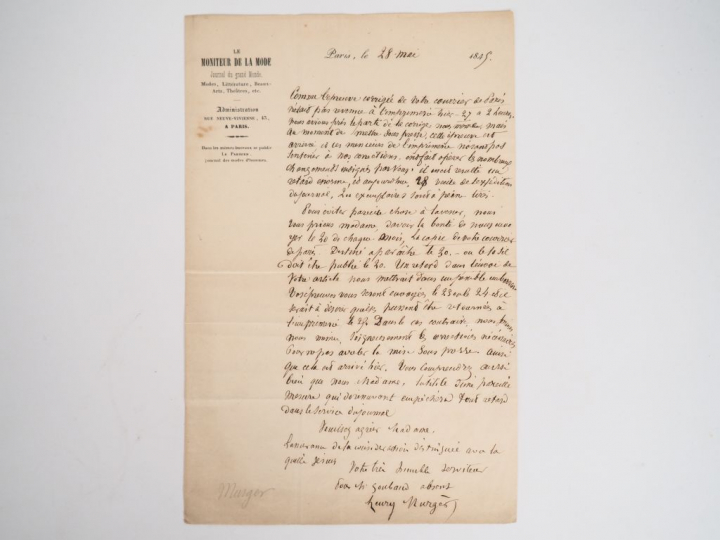 LE
MONITEUR DE LA MODE
Journal du grand Monde.
Modes, Littérature, Beaux-
Arts, Théâtres, etc.
Administration
RUE NEUVE-VIVIENNE, 47,
A PARIS.
Dans les mêmes bureaux se publie
journal des modes d'hommes.
Paris, le 28 mai 1845
Comme l'épreuve corrigée de votre courrier de Paris
n'était pas revenue à l'imprimerie hier 27 à 2 heures,
nous avions pris le parti de le corriger nous mêmes, mais
au moment de mettre sous presse, cette épreuve est
arrivée et les messieurs de l'imprimerie
à nos corrections, ont fait opérer les nombreux
changements indiqués par vous; il en est resulté un
retard énorme, et aujourd'hui, 28 veille de l'expédition
du journal, les exemplaires sont à peine tirés.
Pour éviter pareille chose à l'avenir, nous
vous prions madame, d'avoir la bonté de nous envo
yer le 20 de chaque mois, la copie de votre courrier
de Paris. Destiné à paraître le 30 - ou le 10 s'il
doit être publié le 20. Un retard dans l'envoi de
votre article nous mettrait dans un
Vos épreuves vous seront envoyées le 23 ou le 24
à désirer qu'elles pussent être retournées à
l'imprimerie le 25. Dans le cas contraire, nous
nous même, les corrections nécessaires
pour ne pas arrêter la mise sous presse ainsi
que cela est arrivé hier. Vous comprendrez aussi
bien que nous Madame, l'utilité d'une pareille
mesure qui dorénavant empêchera tout retard
dans le service du journal
Veuillez agréer Madame
l'assurance de la considération distinguée avec la
quelle je suis
Votre très humble serviteur
Pour Mr Goubaud absent
Henry Murger
Murger